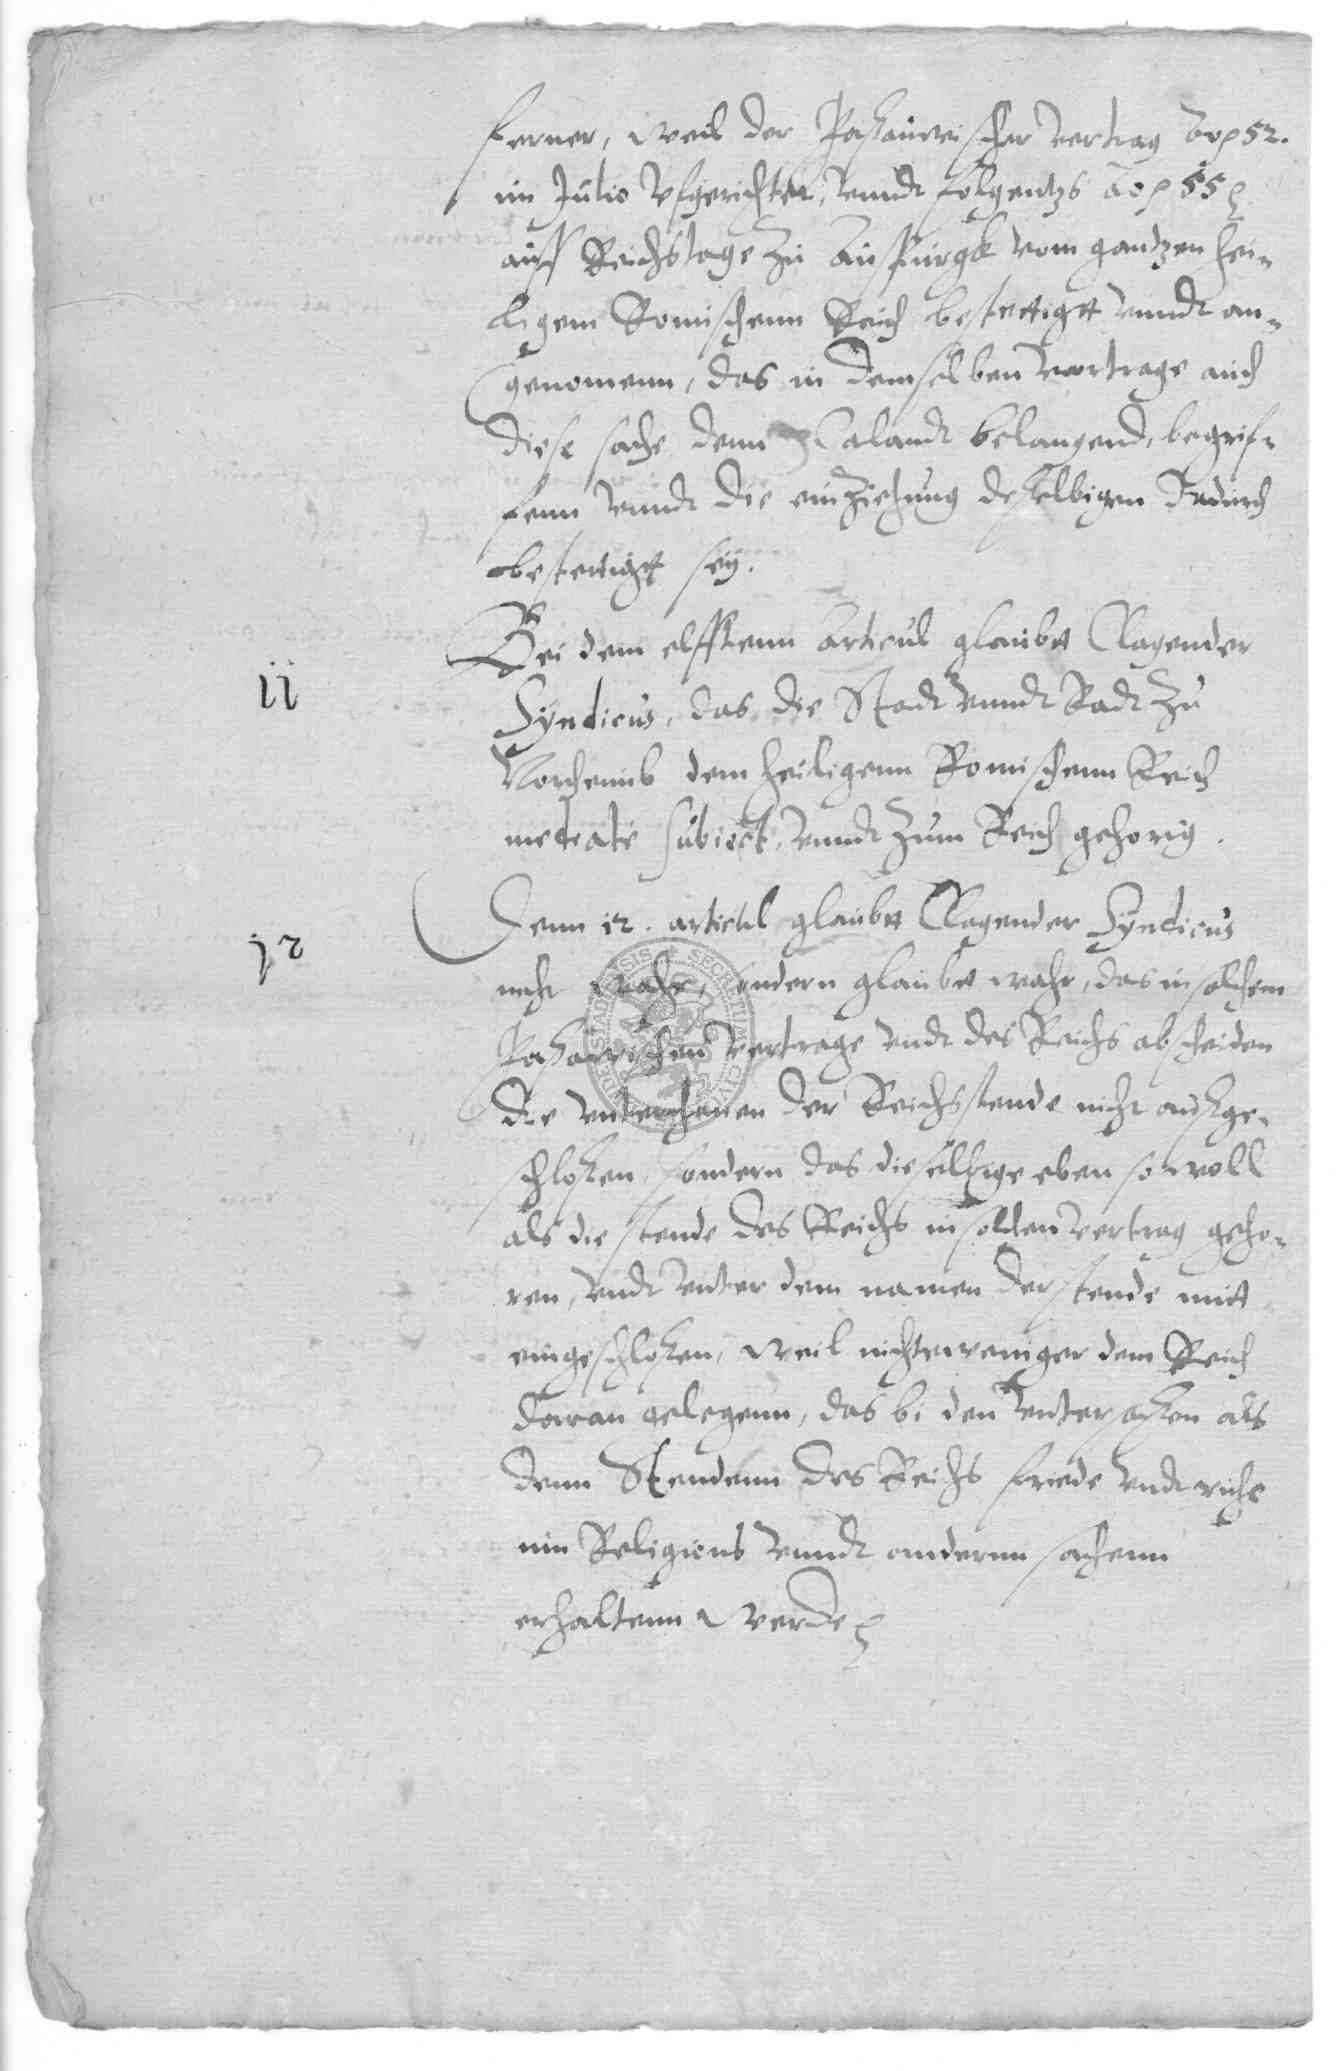 ferner, weil der Passauwischer vertrag Ao 52.
im Julio vfgerichtet, vnndt folgentzs Ao 55
auff Reichstage zu Auspurgk vom gantzen hei-
ligem Romischenn Reich bestettigtt vnndt an-
genomenn, das in demselben vertrage auch
diese sache denn Calandt belangend, begrif-
fenn vnndt die einziehung desselbigen dadurch
bestettigtt sey.
Bei dem elfftenn Articul glaubtt Clagender
11
Syndicus, das die Stadt vnndt Radt zu
Northeimb dem heiligenn Romischenn Reich
mediate subiect, vnndt zum Reich gehorig.
Denn 12. articul glaubtt Clagender Syndicus
12
nicht wahr, sondern glaubtt wahr, das in solchem
Passawischen vertrage vndt des Reichs abscheiden
die vnterthanen der Reichsstende nicht aussge-
schlossen, sondern das dieselbige eben so woll
als die stende des Reichs in solchen vertrag geho-
ren, vndt vnter dem namen der stende mitt
eingeschlossen, weil nichtsweniger dem Reich
daran gelegenn, das bi den vntersassen als
denn Stendenn des Reichs friede vndt ruhe
inn Religions vnndt anderenn sachenn
erhaltenn werde